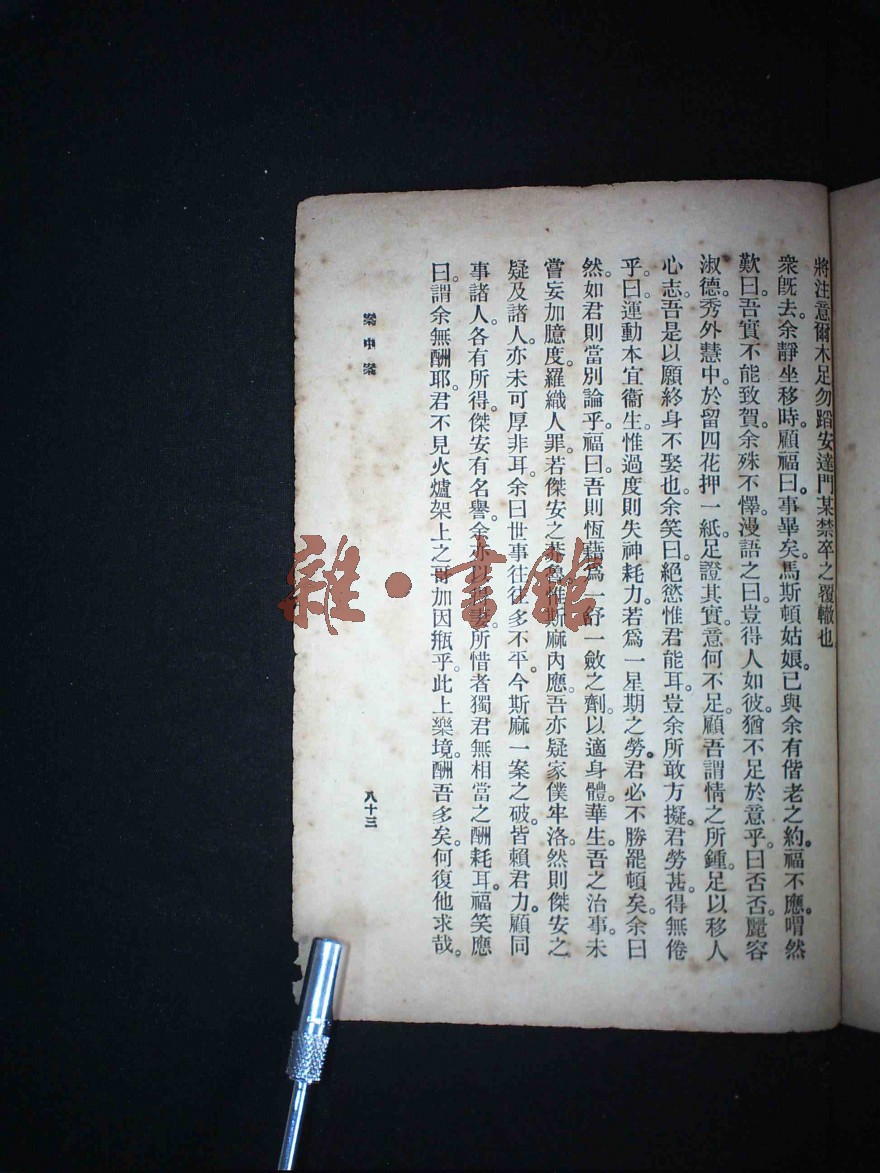 將注意爾木足勿蹈安達門某禁卒之覆轍也
衆旣去。余靜坐移時。顧福曰。事畢矣。馬斯頓姑娘。已與余有偕老之約。福不應。喟然
歎曰。吾實不能致賀。余殊不懌。漫語之曰。豈得人如彼。猶不足於意乎。曰否否。麗容
淑德。秀外慧中。於留四花押一紙。足證其實。意何不足。顧吾謂情之所鍾。足以移人
心志。吾是以願終身不娶也。余笑曰。絕慾惟君能耳。豈余所敢方擬。君勞甚。得無倦
乎。曰。運動本宜衞生。惟過度則失神耗力。若爲一星期之勞。君必不勝罷頓矣。余曰
然。如君則當別論乎。福曰。吾則恆藉爲一舒一斂之劑。以適身體。華生。吾之治事。未
嘗妄加臆度。羅織人罪。若傑安之莽魯。惟斯麻內應。吾亦疑家僕牢洛。然則傑安之
疑及諸人。亦未可厚非耳。余曰。世事往往多不平。今斯麻一案之破。皆賴君力。顧同
事諸人。各有所得。傑安有名譽。余亦以得妻。所惜者獨君無相當之酬耗耳。福笑應
曰。謂余無酬耶。君不見火爐架上之哥加因瓶乎。此上樂境。酬吾多矣。何復他求哉。
案中案
八十三
雜·書館